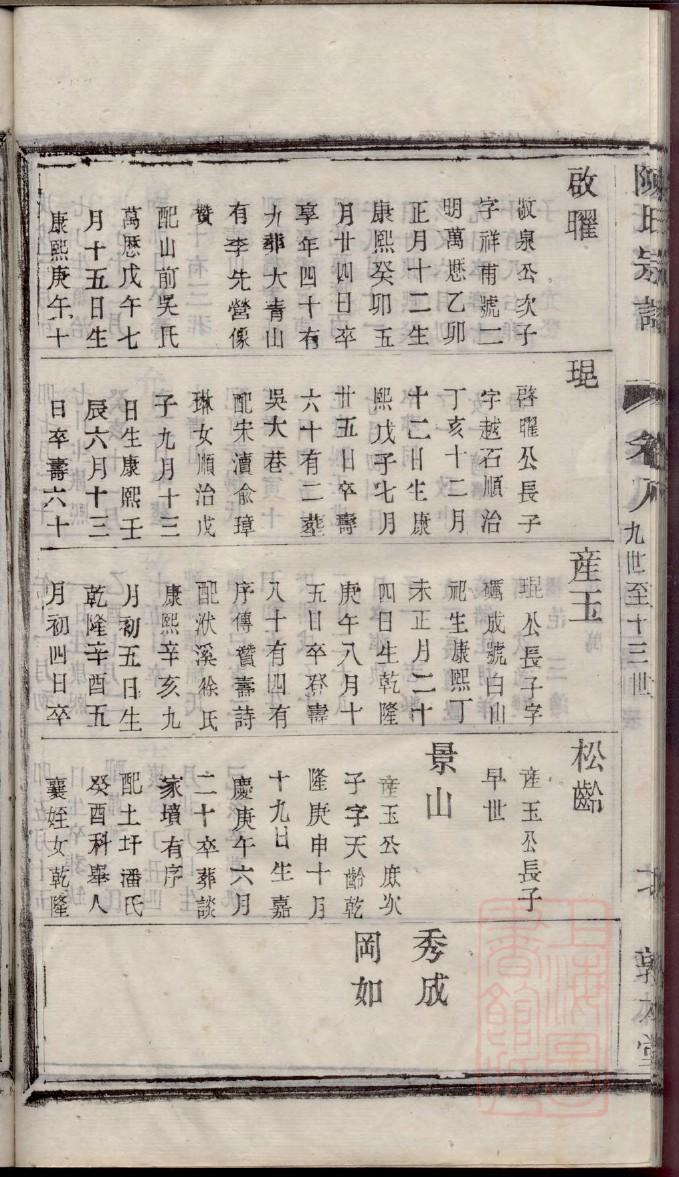 陳氏宗譜
卷八
九世至十三世
敦
堂
啟曜
敬泉公次子
字祥甫號二
明萬歷乙卯
正月十二生
康熙癸卯五
月廿四日卒
享年四十有
九葬大青山
有李先營像
贊
配山前吳氏
萬歷戊午七
月十五日生
康熙庚午十
琨
啓曜公長子
字越石順治
丁亥十二月
十二日生康
熙戊子七月
廿五日卒壽
六十有二葬
吳大巷
配宋瀆俞璋
琳女順治戊
子九月十三
日生康熙壬
辰六月十三
日卒壽六十
産玉
琨公長子字
礪成號白山
祀生康熙丁
未正月二十
四日生乾隆
庚午八月十
五日卒登壽
八十有四有
序傳贊壽詩
配洑溪徐氏
康熙辛亥九
月初五日生
乾隆辛酉五
月初四日卒
松齡
産玉公長子
早世
景山
産玉公庶次
子字天齡乾
隆庚申十月
十九日生嘉
慶庚午六月
二十卒葬談
家墳有序
配土圩潘氏
癸酉科舉人
襄姪女乾隆
秀成
岡如
上海圖書館藏